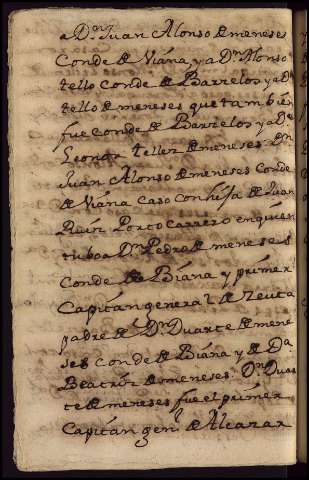 a Dn. Juan Alonso de meneses
Conde de Viána, y a Dn. Alonso
tello conde de Barzelos y a Dn
tello de meneses que tambien
fue conde de Barzelos y a Da.
Leonor tellez de meneses. Dn
Juan Alonso de meneses Conde
de Viána caso con hija de Juan
Ruiz Portocarrero en quien
tubo a Dn. Pedro de meneses
Conde de Biána y primer
Capitán general de Zeuta
padre de Dn. Duarte de mene
ses conde de Biána y de Da.
Beatriz de meneses. Dn. Duar
te de meneses fue el primer
Capitán genl. de Alcazar